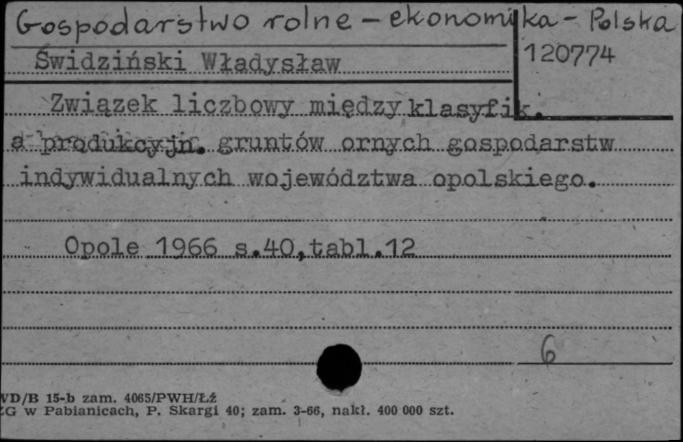 Gospodarstwo rolne - ekonomika - Polska
Świdziński Władysław
120774
Związek liczbowy między klasyfik.
a produkcyjn. gruntów ornych gospodarstw
indywidualnych województwa opolskiego.
Opole 1966 s.40,tabl.12
6
WD/B 15-b zam. 4065/PWH/Łż
ZG w Pabianicach, P. Skargi 40; zam. 3-66, nakł. 400 000 szt.